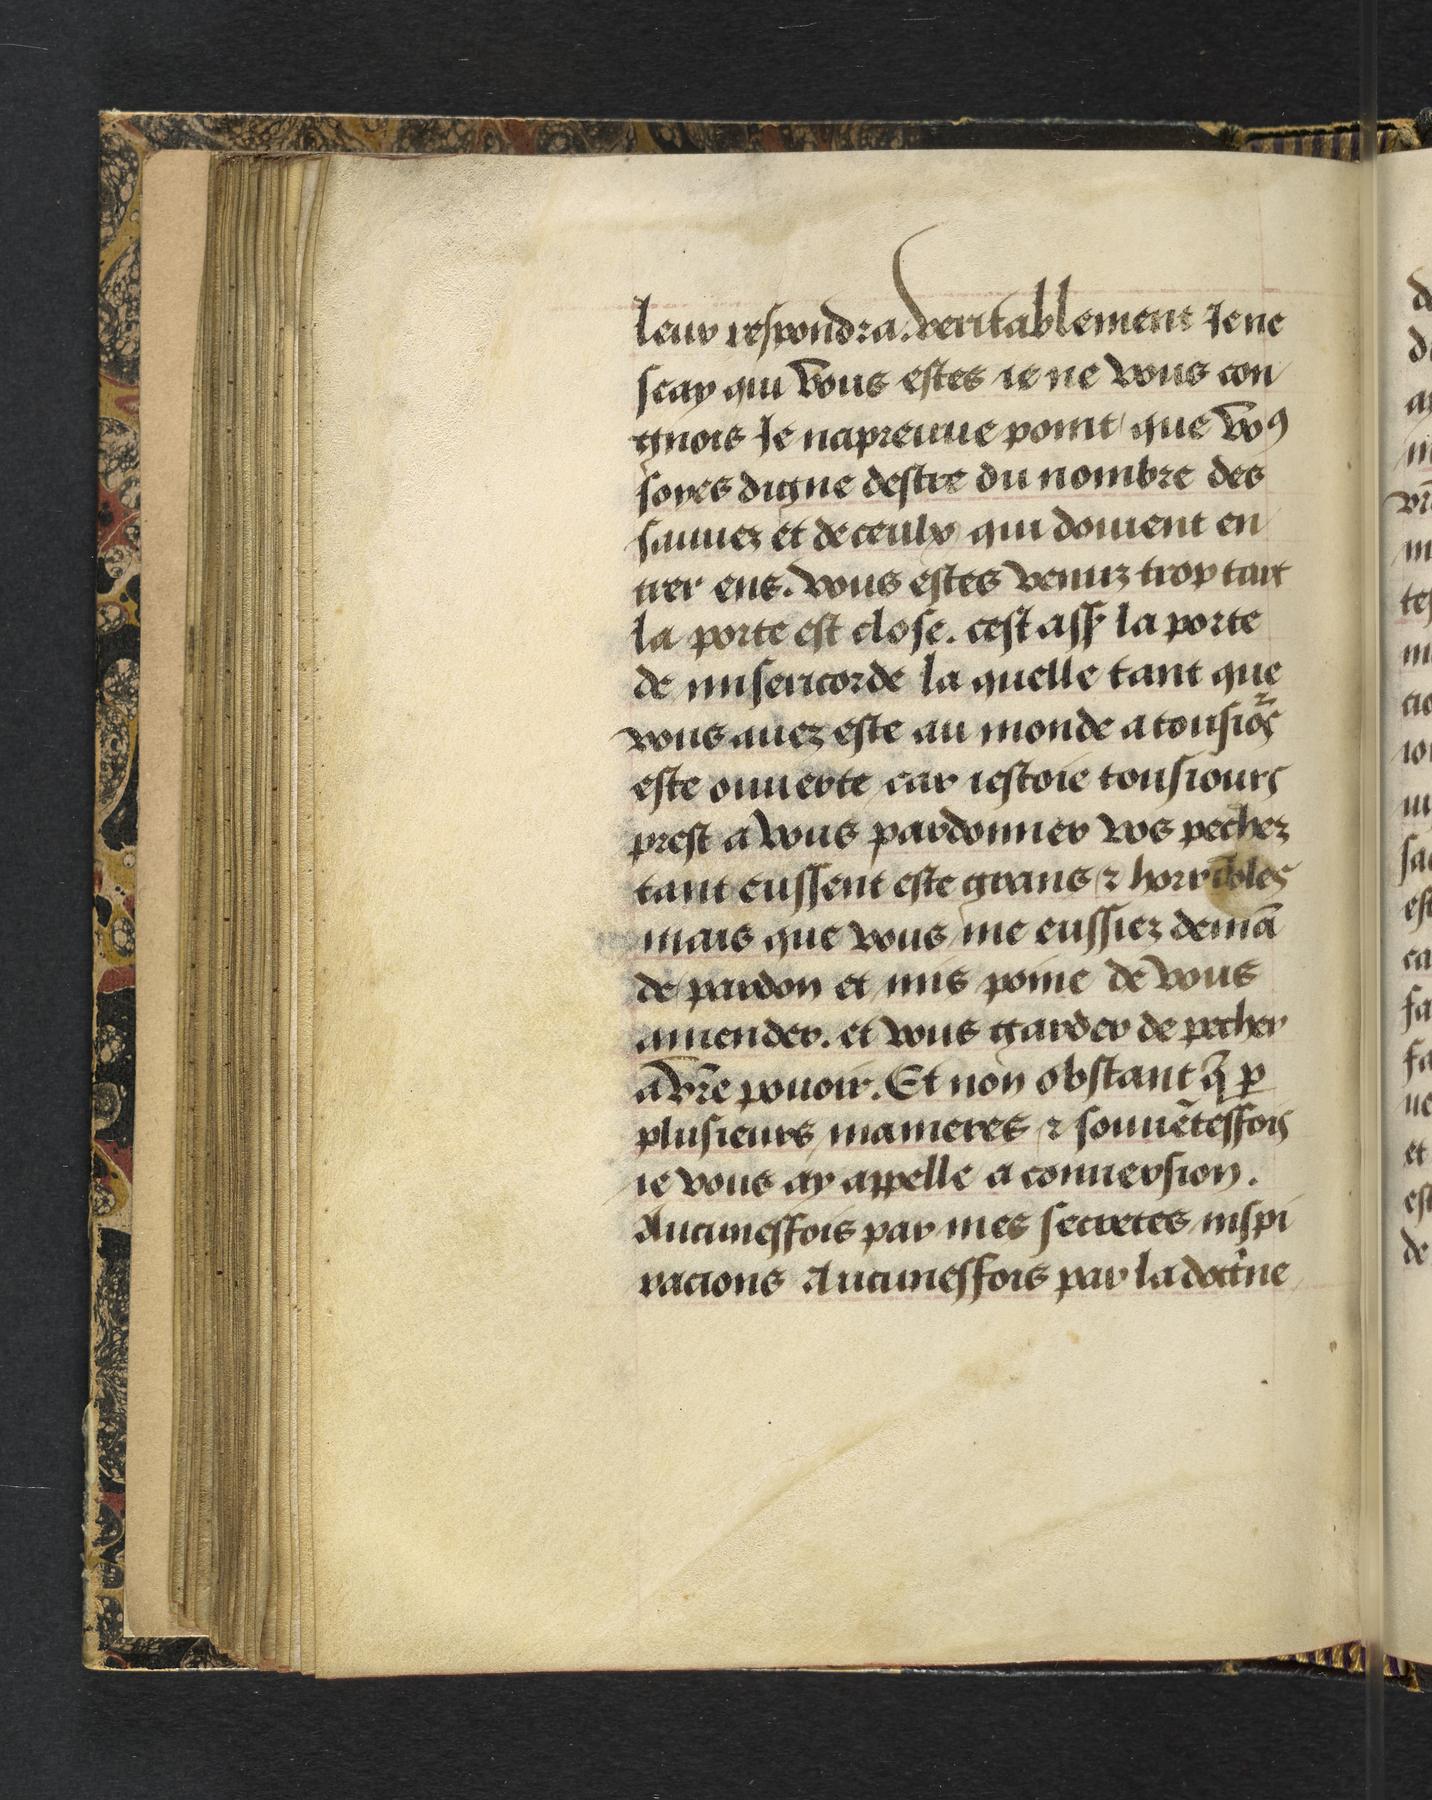 leur respondra. veritablement Je ne
scay qui vous estes ie ne vous con
gnois Je napreuue point que vo⁹
soyes digne destre du nombre des
sauuez et de ceulx qui doiuent en
trer ens. vous estes venuz trop tart
la porte est close. cest ass̄ la porte
de misericorde la quelle tant que
vous auez este au monde a tousiõs
este ouuerte car iestoie tousiours
prest a vous pardonner vos pechez
tant eussent este grans ⁊ horribles
mais que vous me eussiez demã
de pardon et mis poine de vous
amender. et vous garder de pecher
a vr̄e pouoir. Et non obstant q̄ ꝑ
plusieurs manieres ⁊ souuẽteffois
ie vous ay appelle a conuersion.
Aucuneffois par mes secretes inspi
racions Aucuneffois par la doctine